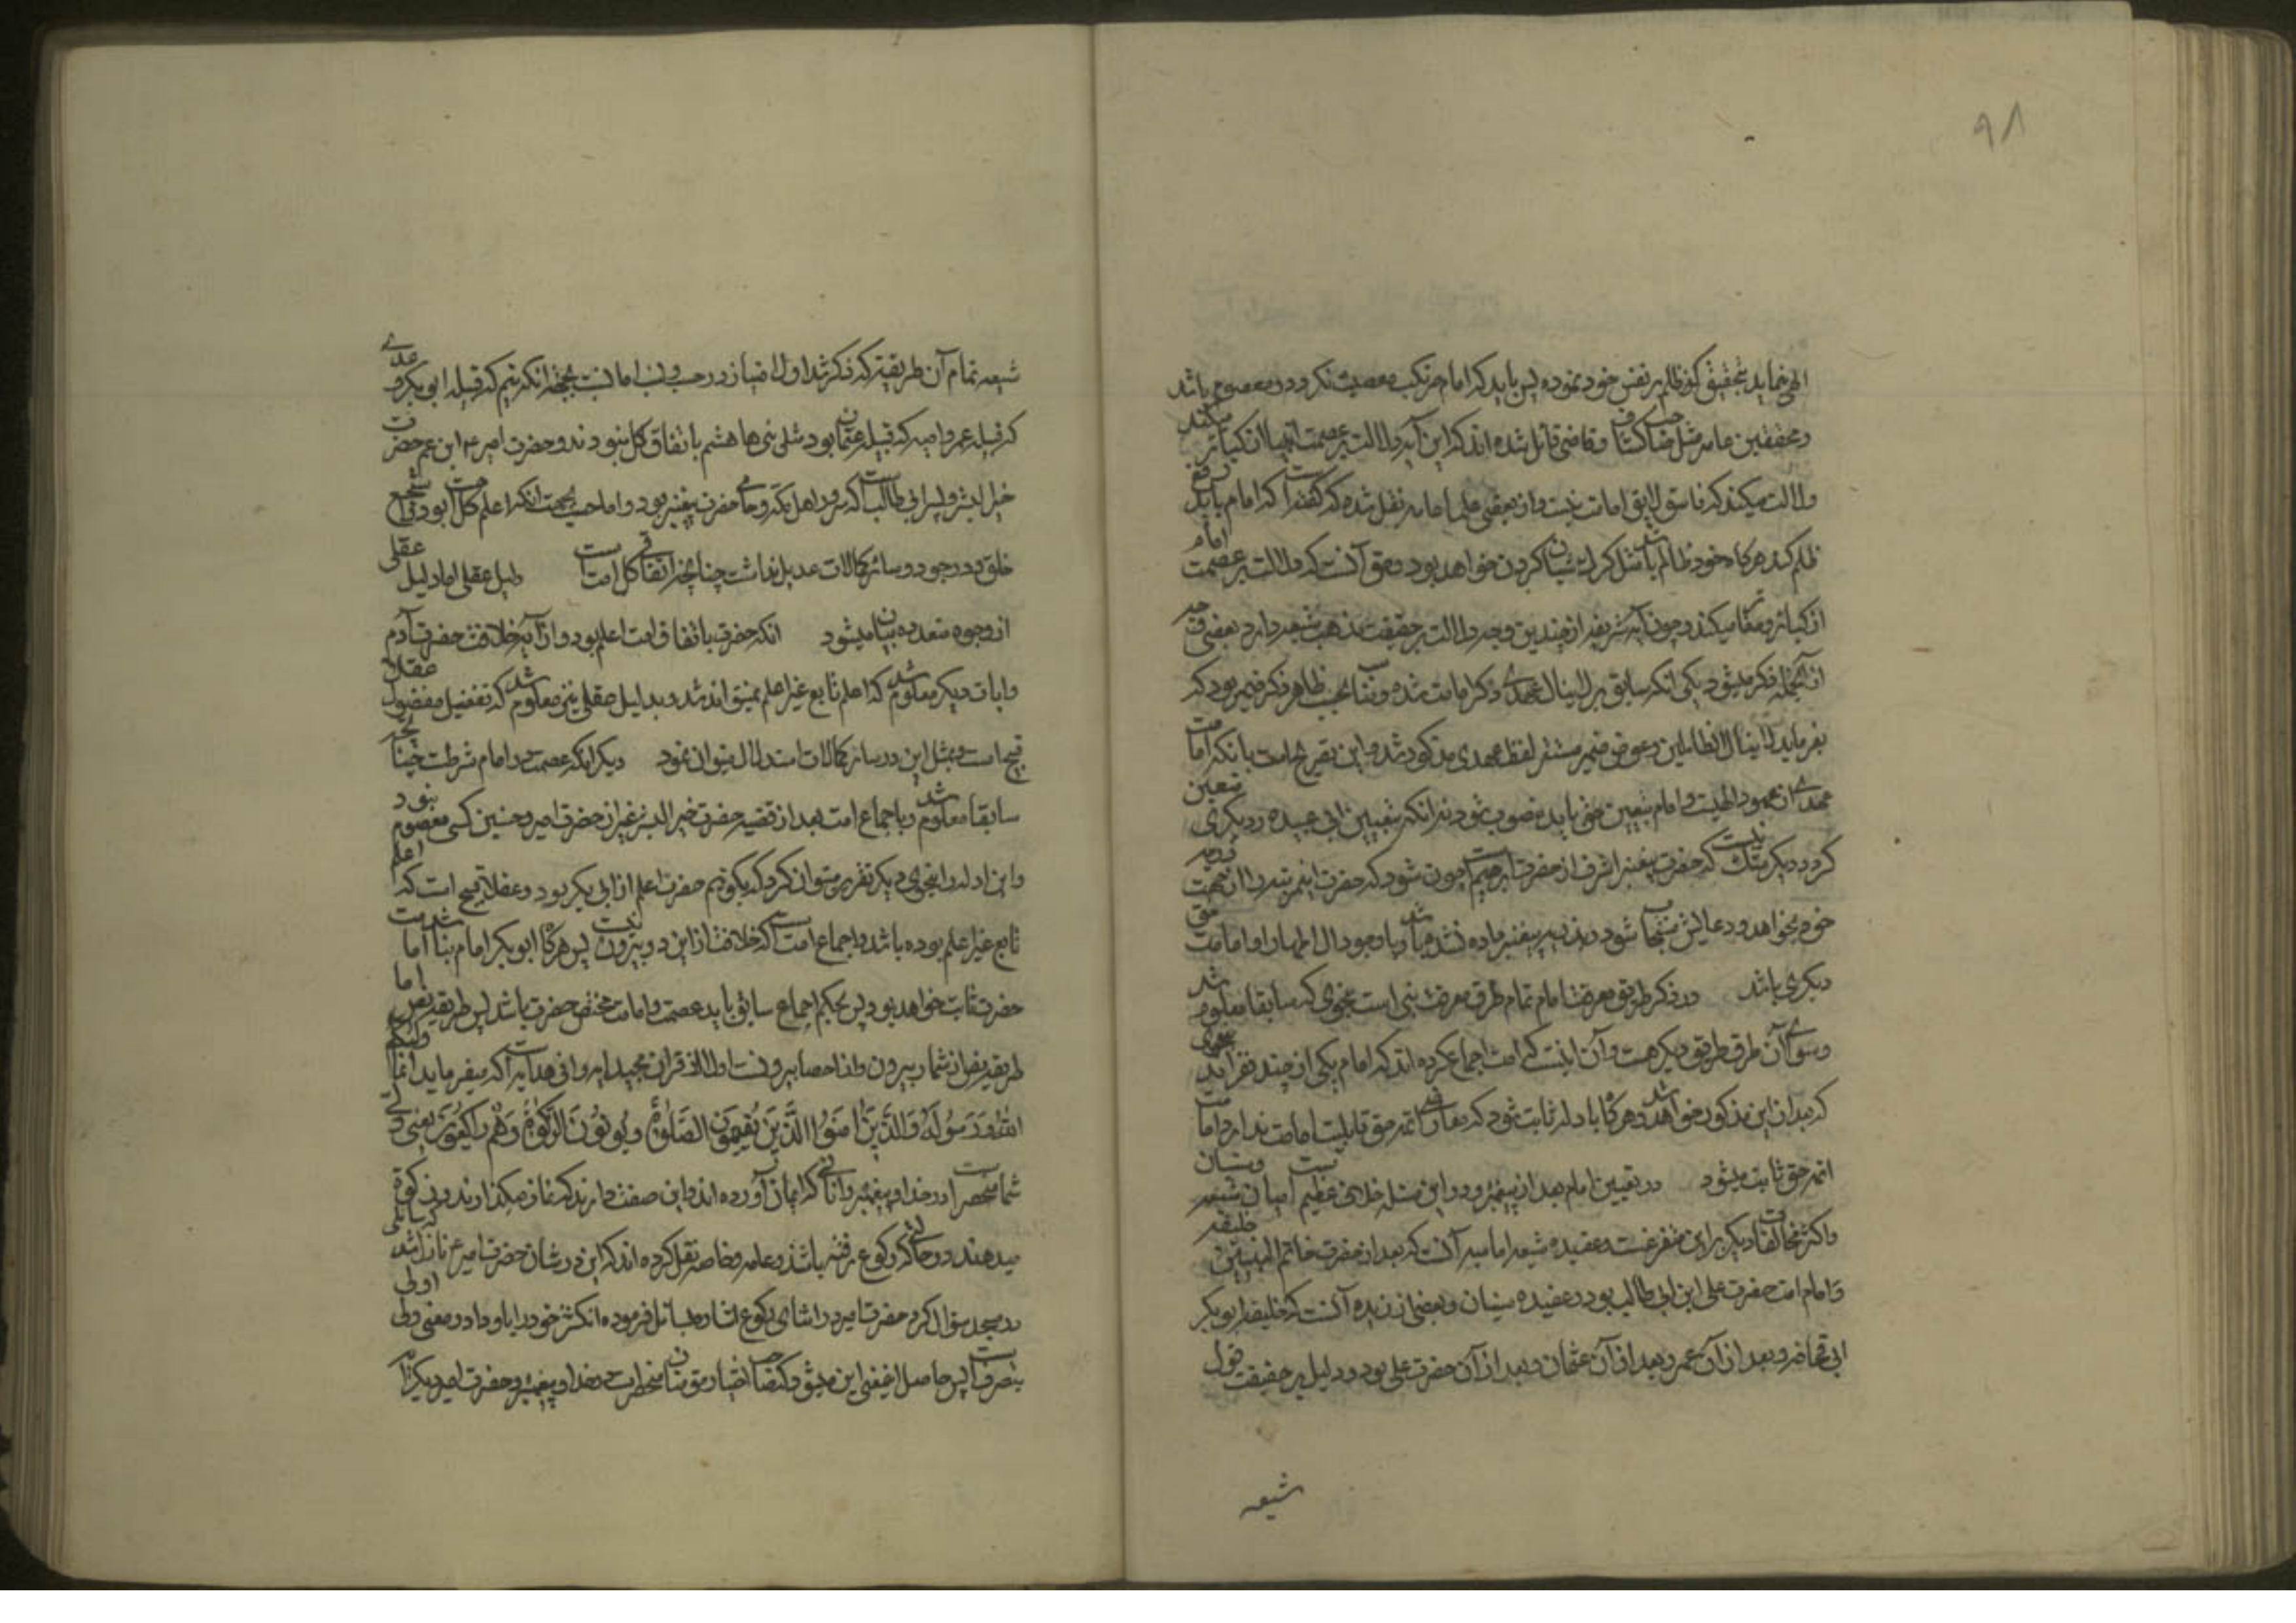 ۹۸
الهی نماید بتحقیق که ظالم بر نفس خود نموده پس باید که امام مرتکب معصیت نکردد و معصوم باشد
و محققین عامه مثل صاحب کشاف و قاضی قائل شده اند که این آیه دلالت بر عصمت انبیا از کبائر میکند
دلالت میکند که فاسق لایق امامت نیست و از بعضی علما امامیه نقل شده که گفته است که امام باید رفع
ظلم کند هرکاه خود ظالم باشد مثل کرک شبان کردن خواهد بود و حق آنست که دلالت بر عصمت امام
از کبائر و صغائر میکند و چون آیه شریفه از چندین وجه دلالت بر حقیقت مذهب شیعه دارد بعضی
از آنجمله ذکر میشود یکی انکه سابق بر لاینال عهدی ذکر امامت شده و مناسب بحسب ظاهر ذکر ضمیر بود که
بفرماید لاینال الظالمین و عوض ضمیر مستتر لفظ عهدی مذکور شد و این تصریح است بانکه امامت
عهدی از عهود الهیست و امام بتعیین حق باید منصوب شود نه انکه بتعیین ابی عبیده و دیکری متعین
کردد دیکر شک نیست که حضرت پیغمبر اشرف از حضرت ابرهیم است چون شود که حضرت ابرهیم مرتبه را از جهت ذریه
خود بخواهد و دعایش مستجاب شود و ذریه پیغمبر ما داده نشده باشد و باوجود ال اطهار او امامت حق
دیکری باشد در ذکر طریق معرفت امام تمام طرق معرفت نبی است بنحوی که سابقا معلوم شد
و سوای آن طرق طریق دیکر هست و آن اینست که امت اجماع کرده اند که امام یکی از چند نفر اند بنحوی
که بعد از این مذکور خواهد شد و هرکاه بادله ثابت شود که غیر از ائمه حق قابلیت امامت ندارد امامت
ائمه حق ثابت میشود در تعیین امام بعد از پیغمبر و در این مسئله خلاف عظیم است میان شیعه و سنیان
و اکثر مخالفات دیکر بر این متفرعست عقیده شیعه امامیه آنست که بعد از حضرت خاتم النبیین خلیفه
و امام امت حضرت علی ابن ابی طالب بود و عقیده سنیان و بعضی از زیدیه آنست که خلیفه ابو بکر
ابی قحافه و بعد از آن عمر و بعد از آن عثمان و بعد از آن حضرت علی بود و دلیل بر حقیقت قول
شیعه
شیعه تمام آن طریقیست که ذکر شد اولا امتیاز در حسب و نسب اما نسب بجهة انکه تیم که قبیله ابو بکر و عدی
که قبیله عمر و امیه که قبیله عثمان بود مثل بنی هاشم باتفاق کل نبودند و حضرت امیر ع ابن عم حضرت
خیر البشر و پسر ابی طالب است که بزرك اهل مکه و حامی حضرت پیغمبر بود و اما حسب بجهت انکه اعلم کل امت بود و اشجع
خلق و در جود و سائر کمالات عدیل نداشت چنانچه اتفاقی کل امت است دلیل عقلی اما دلیل عقلی
از وجوه متعدده بیان میشود انکه حضرت باتفاق امت اعلم بود و از آیه خلافت حضرت آدم
و ایات دیکر معلوم شد که اعلم تابع غیر اعلم نمیتواند شد و بدلیل عقلی نیز معلوم شد که تفضیل مفضول عقلا
قبیح است و بمثل این در سائر کمالات استدلال میتوان نمود دیکر انکه عصمت در امام شرطست چنانچه
سابقا معلوم شد و باجماع امت بعد از قضیه حضرت خیر البشر غیر از حضرت امیر و حسنین کسی معصوم نبود
و این ادله را بنحوی دیکر تقریر میتوان کرد که بکوئیم حضرت اعلم از ابی بکر بود و عقلا قبیح است که اعلم
تابع غیر اعلم بوده باشد و اجماع امت است که خلافت از این دو بیرون نیست پس هرکاه ابو بکر امام نباشد امامت
حضرت ثابت خواهد بود پس بحکم اجماع سابق باید عصمت و امامت مختص حضرت باشد پس طریقه نص اما
طریقه نص از شمار بیرون و از احصا بیرونست اولا از قران مجید ایه وافی هدایه است که میفرماید انما ولیکم
الله ورسوله والذین امنوا الذین یقیمون الصلوة ویؤتون الزکوة وهم راکعون یعنی ولی
شما منحصر است در خدا و پیغمبر و انانی که ایمان آورده اند و این صفت دارند که نماز میکذارند و زکوة
میدهند در حالتی که رکوع رفته باشند و عامه و خاصه نقل کرده اند که این در شان حضرت امیر ع نازل شد که سائلی
در مسجد سؤال کرد حضرت امیر در اثنای رکوع اشاره بسائل فرموده انکشتر خود را باو داد و معنی ولی اولی
بتصرف است پس حاصل معنی این میشود که صاحب اختیار مؤمنان منحصر است در خدا و پیغمبر و حضرت امیر و دیکر را